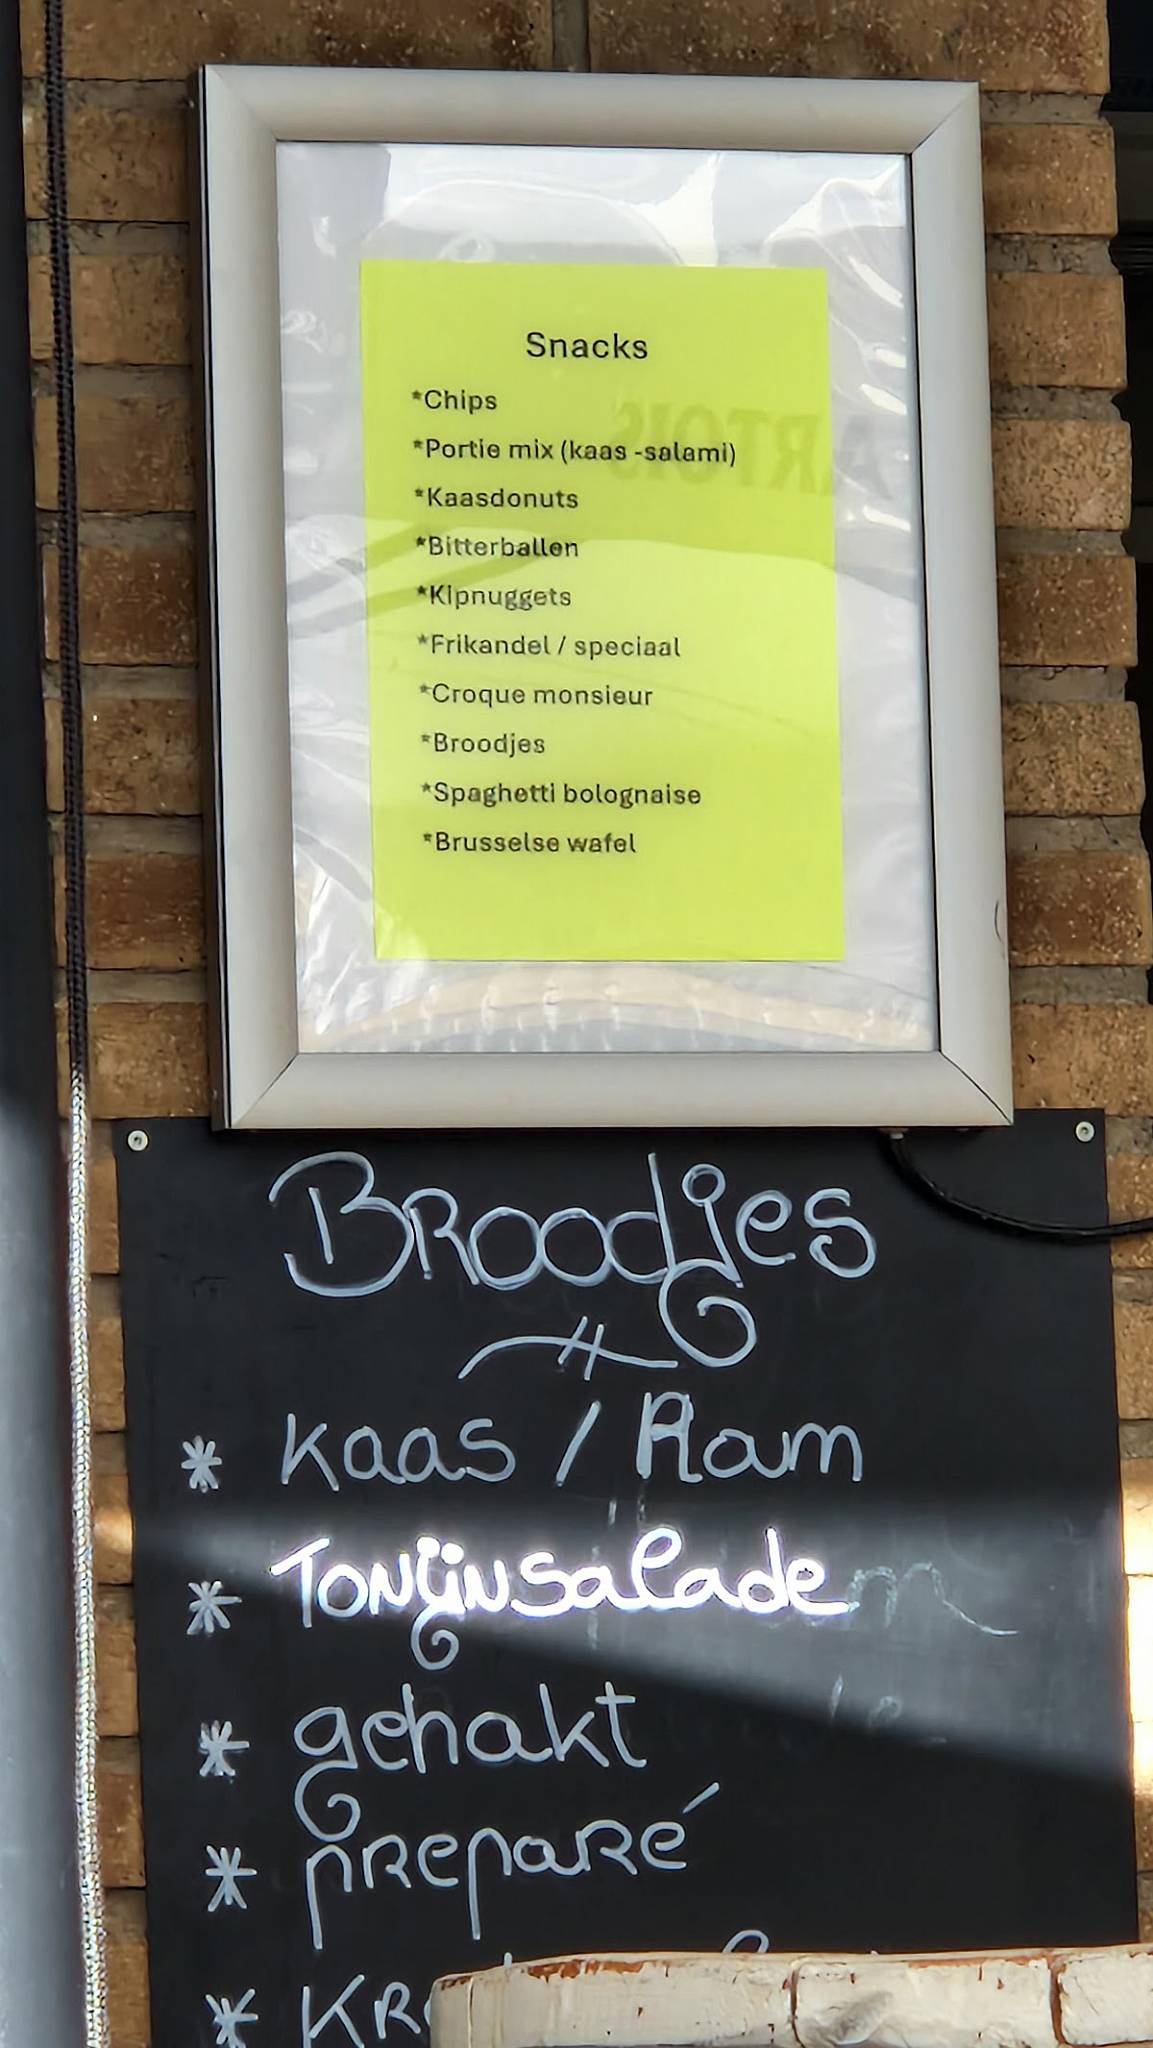 Snacks
*Chips
*Portie mix (kaas -salami)
*Kaasdonuts
*Bitterballen
*Kipnuggets
*Frikandel / speciaal
*Croque monsieur
*Broodjes
*Spaghetti bolognaise
*Brusselse wafel
ARTOIS
Broodjes
* Kaas / Ham
* Tonijnsalade
* gehakt
* preparé
*